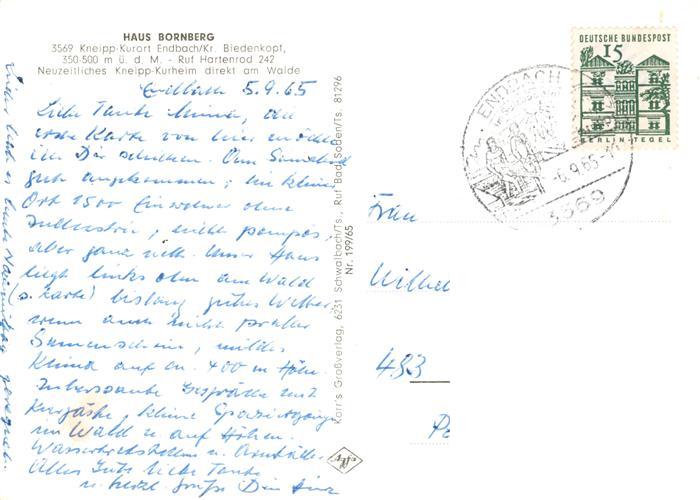 HAUS BORNBERG
3569 Kneipp-Kurort Endbach/Kr. Biedenkopf,
350-500 m ü. d. M. - Ruf Hartenrod 242
Neuzeitliches Kneipp-Kurheim direkt am Walde
Endbach 5.9.65
Liebe Tante Minna, die
erste Karte von hier möchte
ich Dir schicken. Am Sonnabend
gut angekommen; ein kleiner
Ort 1500 Einwohner ohne
Industrie, nicht pompös,
aber ganz nett. Unser Haus
liegt links oben am Wald
(s. Karte) bislang gutes Wetter
wenn auch nicht praller
Sonnenschein, mildes
Klima auf ca. 400 m Höhe.
Gespräche mit
Kurgäste, kleine Spaziergänge
im Wald u. auf Höhen.
Wassertretstellen u.
Alles Gute liebe Tante
u. herzl. Grüße Dein
Leider hat es heute Nachmittag geregnet.
Karr's Großverlag, 6231 Schwalbach/Ts., Ruf Bad Soden/Ts. 81296
Nr. 199/65
DEUTSCHE BUNDESPOST
15
BERLIN-TEGEL
ENDBACH
-6.9.65
3569
Frau
Wilhel
493